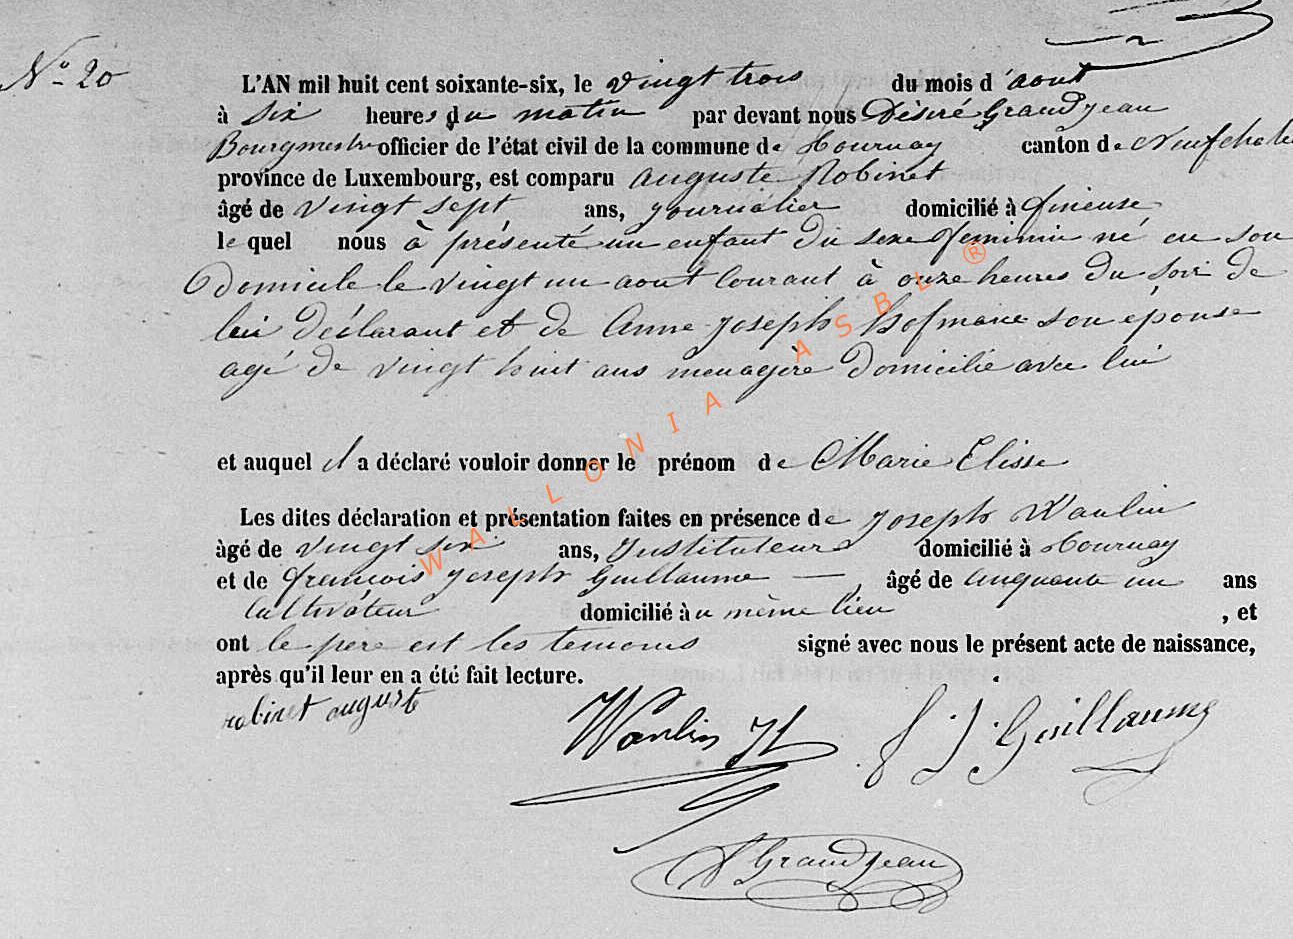 N° 20
L'AN mil huit cent soixante-six, le vingt trois du mois d'aout
à six heures du matin par devant nous Désiré Grandjean
Bourgmestre officier de l'état civil de la commune de Tournay canton de Neufchate
province de Luxembourg, est comparu auguste Robinet
âgé de vingt sept ans, journalier domicilié à fineuse
le quel nous à présenté un enfant du sexe féminin né en son
Domicile le vingt un aout courant à onze heures du soir de
lui déclarant et de Anne Joseph hofmane son épouse
agé de vingt huit ans menagère Domicilié avec lui
et auquel il a déclaré vouloir donner le prénom de Marie Elisse
Les dites déclaration et présentation faites en présence de Joseph Wanlin
âgé de vingt six ans, Instituteur domicilié à Tournay
et de françois Joseph Guillaume — , âgé de cinquante un ans
Cultivateur domicilié au même lieu , et
ont le pere est les temoins signé avec nous le présent acte de naissance,
après qu'il leur en a été fait lecture.
robinet auguste
Wanlin JH
f. J. Guillaume
D Grandjean
WALLONIA ASBL ®